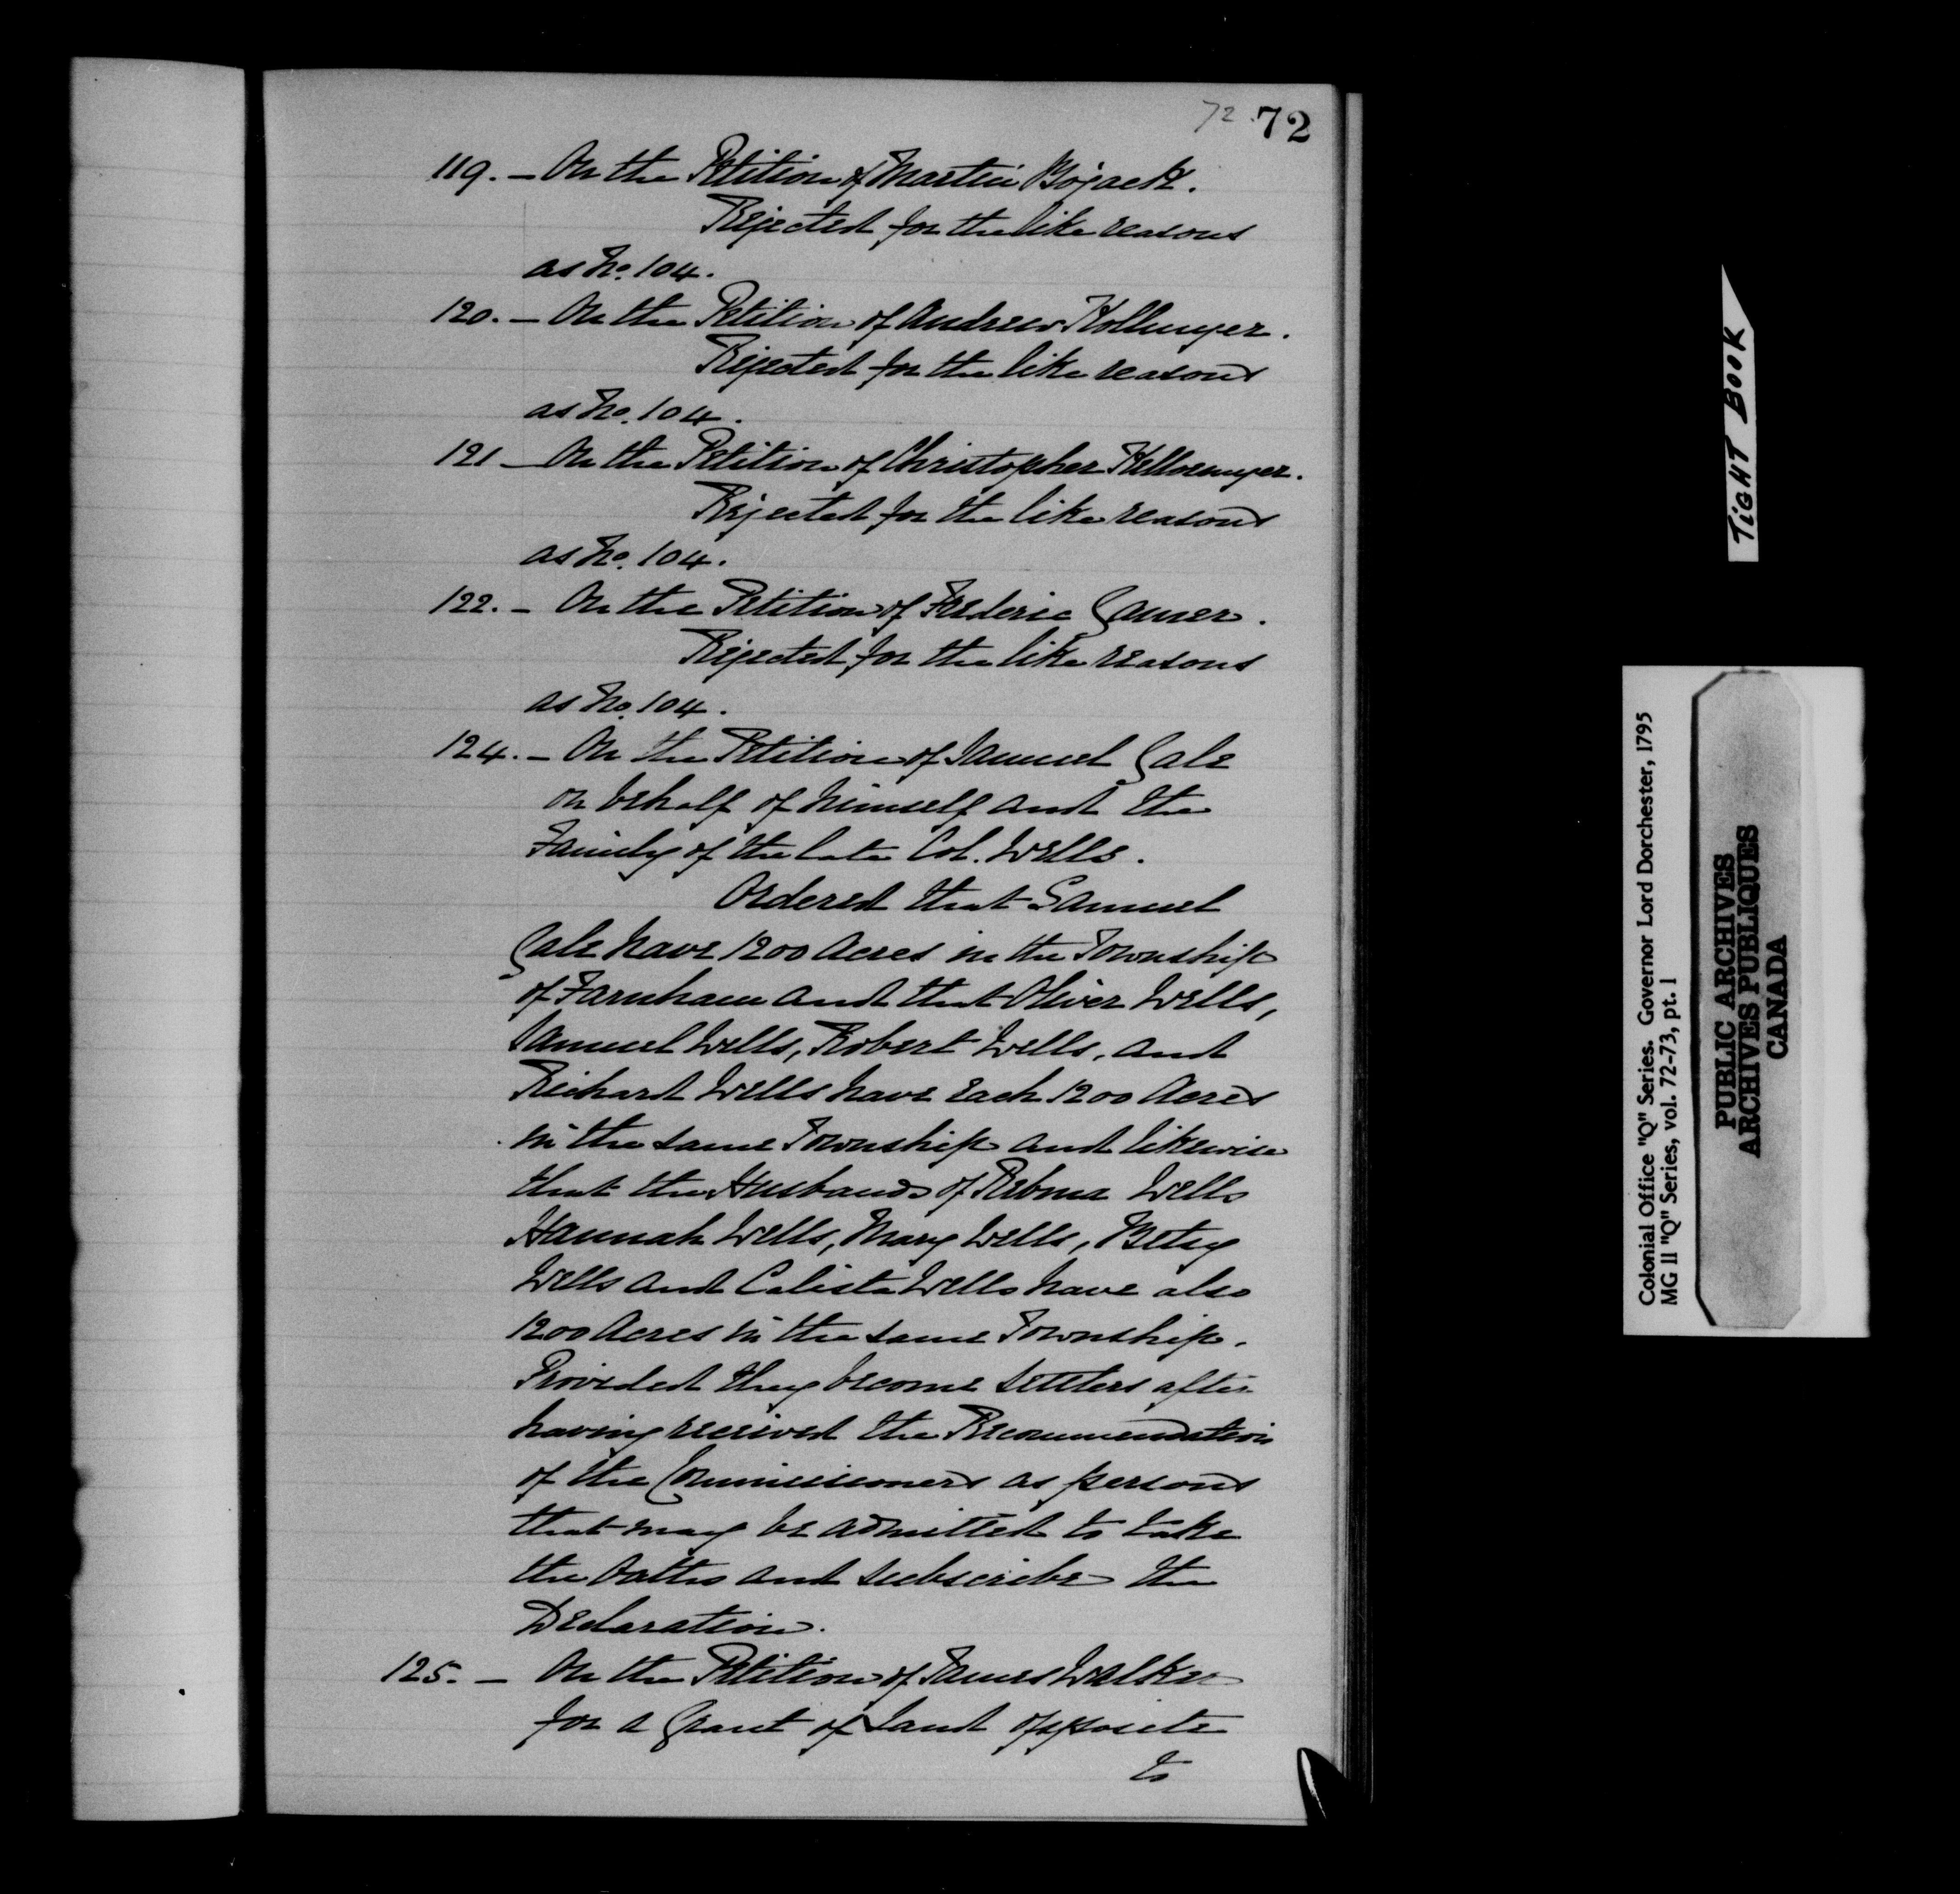 72. 72
119. — On the Petition of Martin Bojack.
Rejected for the like reasons
as No. 104.
120. — On the Petition of Andrew Hollmyer.
Rejected for the like reasons
as No. 104.
121 — On the Petition of Christopher
Rejected for the like reasons
as No. 104.
122. — On the Petition of Frederic Gamer.
Rejected for the like reasons
as No. 104.
124. — On the Petition of Samuel Gale
on behalf of himself and the
Family of the late Col. Wells.
Ordered that Samuel
Gale have 1200 Acres in the Township
of Farnham and that Oliver Wells,
Samuel Wells, Robert Wells, and
Richard Wells have each 1200 Acres
in the same Township and likewise
that the Husbands of Wells
Hannah Wells, Mary Wells, Betsy
Wells and Calista Wells have also
1200 Acres in the same Township.
Provided they become settlers after
having received the Recommendation
of the Commissioners as persons
that may be admitted to take
the Oaths and subscribe the
Declaration.
125. — On the Petition of James Walker
for a Grant of Land opposite
to
TIGHT BOOK
Colonial Office "Q" Series. Governor Lord Dorchester, 1795
MG 11 "Q" Series, vol. 72-73, pt. 1
PUBLIC ARCHIVES
ARCHIVES PUBLIQUES
CANADA